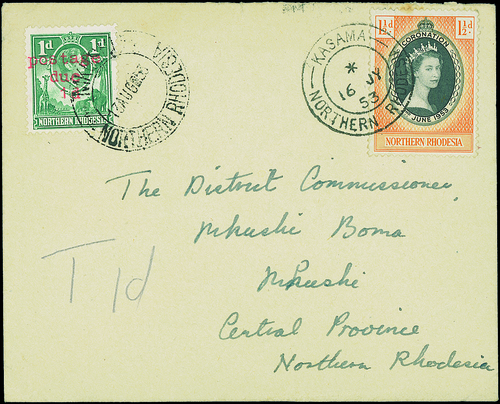 1d 1d
postage
due
1d
NORTHERN RHODESIA
NORTHERN RHODESIA
KASAMA
*
16 JY
53
NORTHERN RHODESIA
1½d 1½d.
CORONATION
JUNE 1953
NORTHERN RHODESIA
The District Commissioner,
Mkushi Boma
Mkushi
Central Province
Northern Rhodesia
T 1d